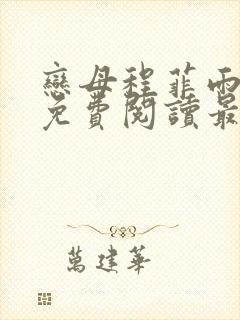 戀母程菲雨
免費閱讀最
萬建華